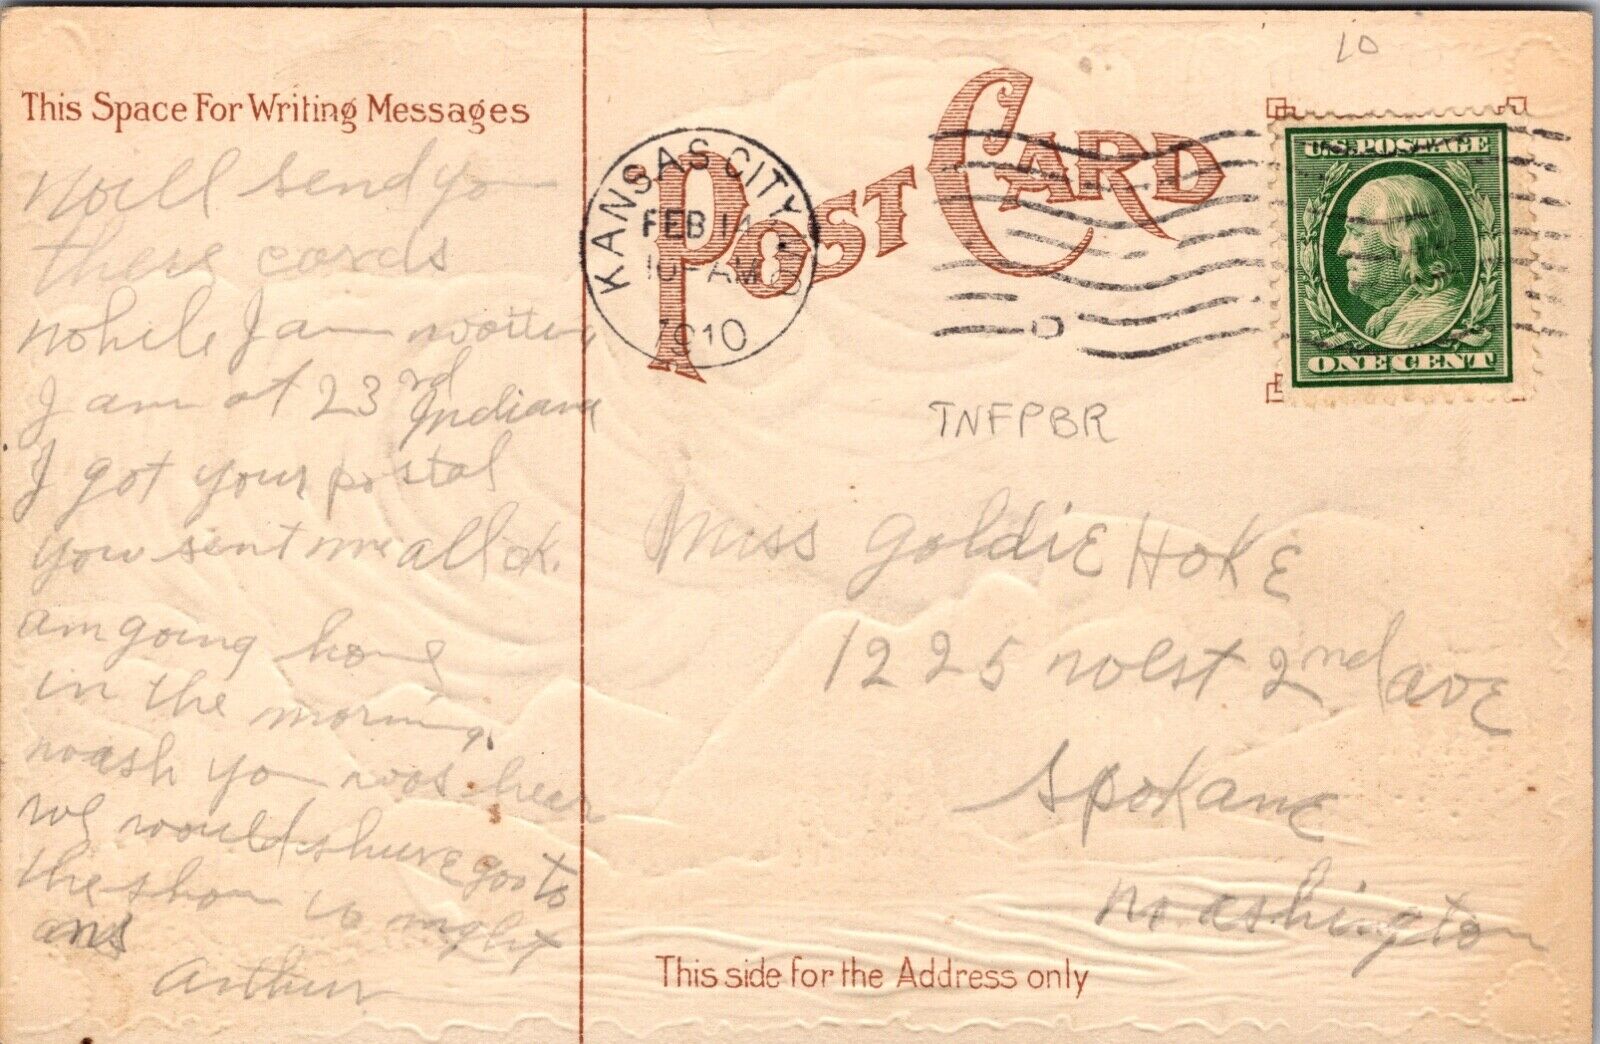 This Space For Writing Messages
Well send yo
these cards
while I am waiting
I am at 23rd
Indiana
I got your postal
you sent me all ok.
am going home
in the morning
wash yo was hear
we would shure go to
the show to night
ans
Arthur
POST CARD
KANSAS CITY
FEB 14
10 - AM
1910
10
U.S. POSTAGE
ONE CENT
TNFPBR
Miss Goldie Hoke
1225 West 2nd ave
Spokane
Washington
This side for the Address only